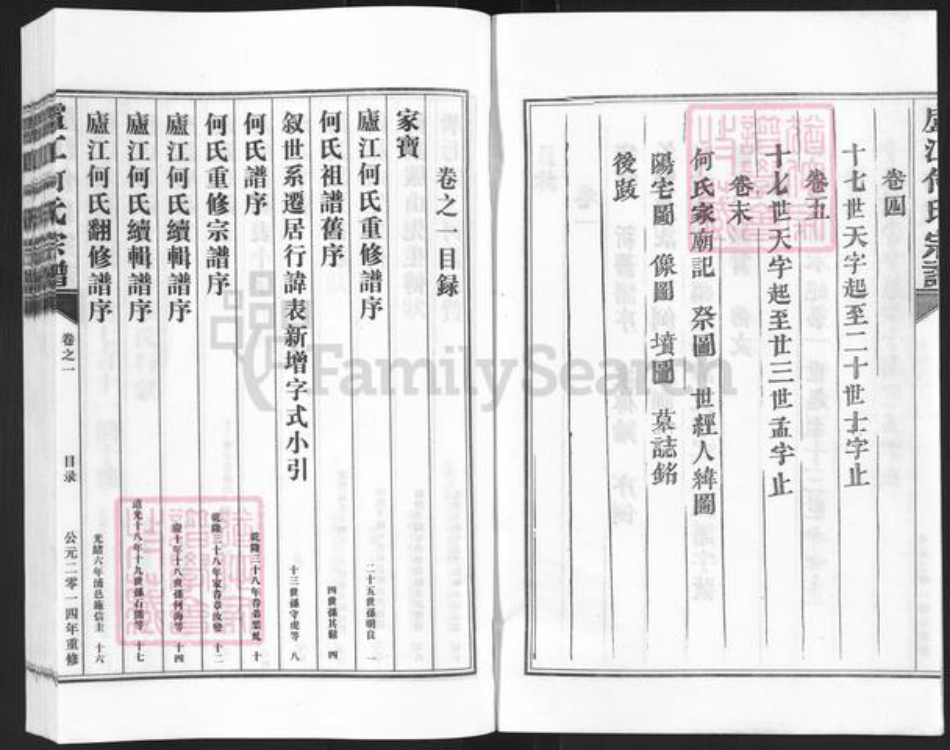 廬江何氏宗譜
卷四
十七世天字起至二十世士字止
卷五
十七世天字起至廿三世孟字止
卷末
何氏家廟記 祭圖 世經人緯圖
陽宅圖 像圖 墳圖 墓誌銘
後跋
卷之一目錄
家寶
廬江何氏重修譜序 二十五世孫明良 一
何氏祖譜舊序 四世孫其 四
叙世系遷居行諱表新增字式小引 十三世孫守虎等 八
何氏譜序 乾隆三十八年眷弟 十
何氏重修宗譜序 乾隆三十八年 十二
廬江何氏續輯譜序 十八世孫何 等 十四
廬江何氏續輯譜序 道光十八年十九世孫 十七
廬江何氏翻修譜序 光緒六年浦邑施信圭 十六
廬江何氏宗譜
卷之一
目录
公元二零一四年重修
FamilySearch